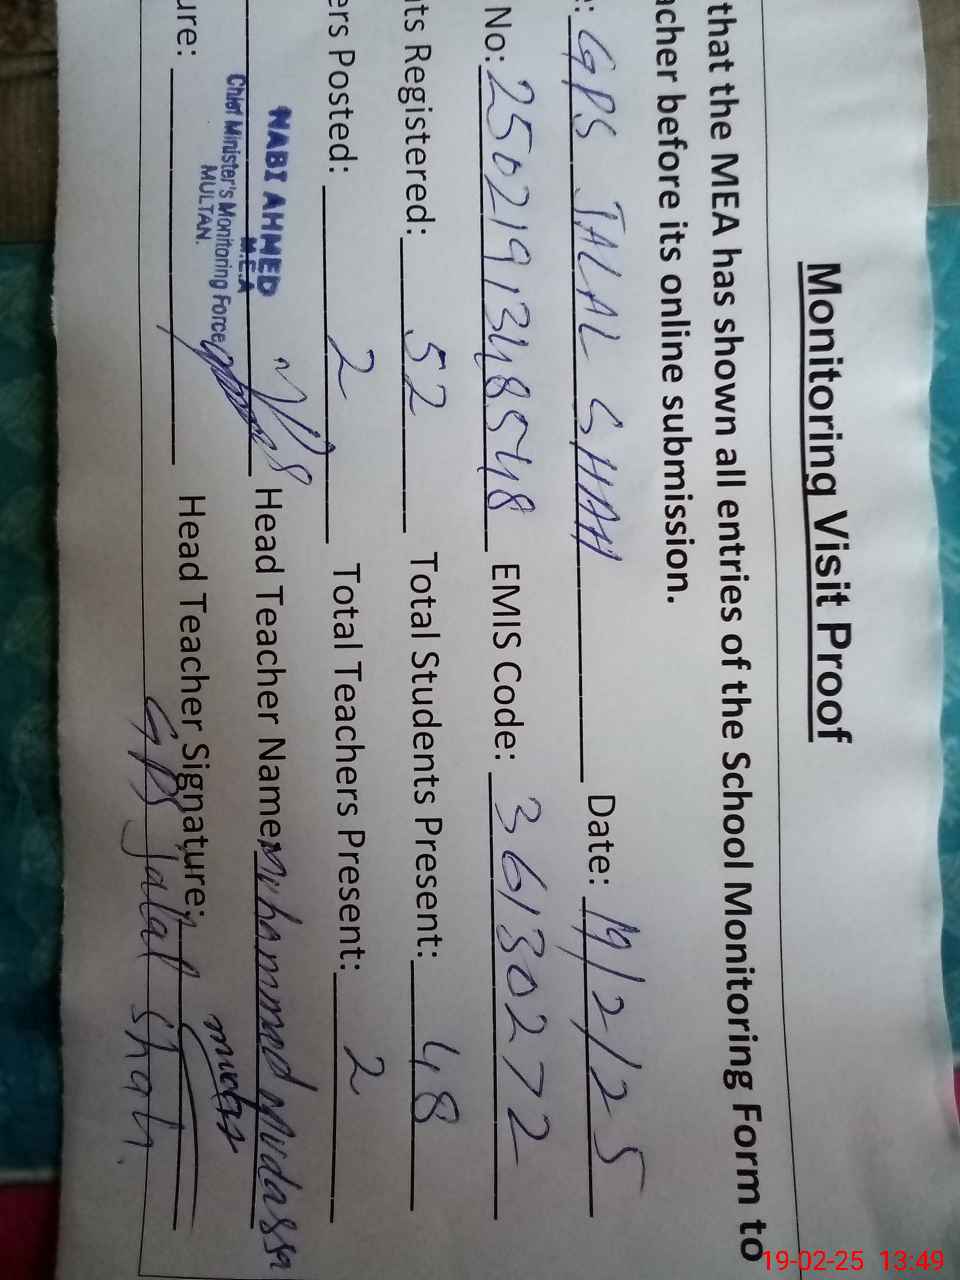 Monitoring Visit Proof
that the MEA has shown all entries of the School Monitoring Form to
acher before its online submission.
e: GPS JALAL SHAH Date: 19/2/25
No: 2502191348548 EMIS Code: 36130272
ts Registered: 52 Total Students Present: 48
ers Posted: 2 Total Teachers Present: 2
NABI AHMED
M.E.A
Chief Minister's Monitoring Force
MULTAN.
Head Teacher Name: Muhammad Mudassa
ure: Head Teacher Signature:
GPS Jalal Shah.
19-02-25 13:49